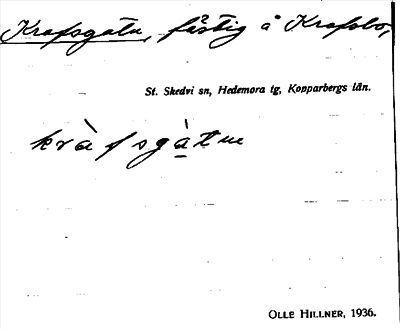 Krafsgatu, fästig å Krafsbo,
St. Skedvi sn, Hedemora tg, Kopparbergs län.
kràfsgàtne
OLLE HILLNER, 1936.